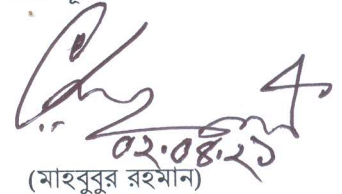 ০২.০৪.২১
(মাহবুবুর রহমান)